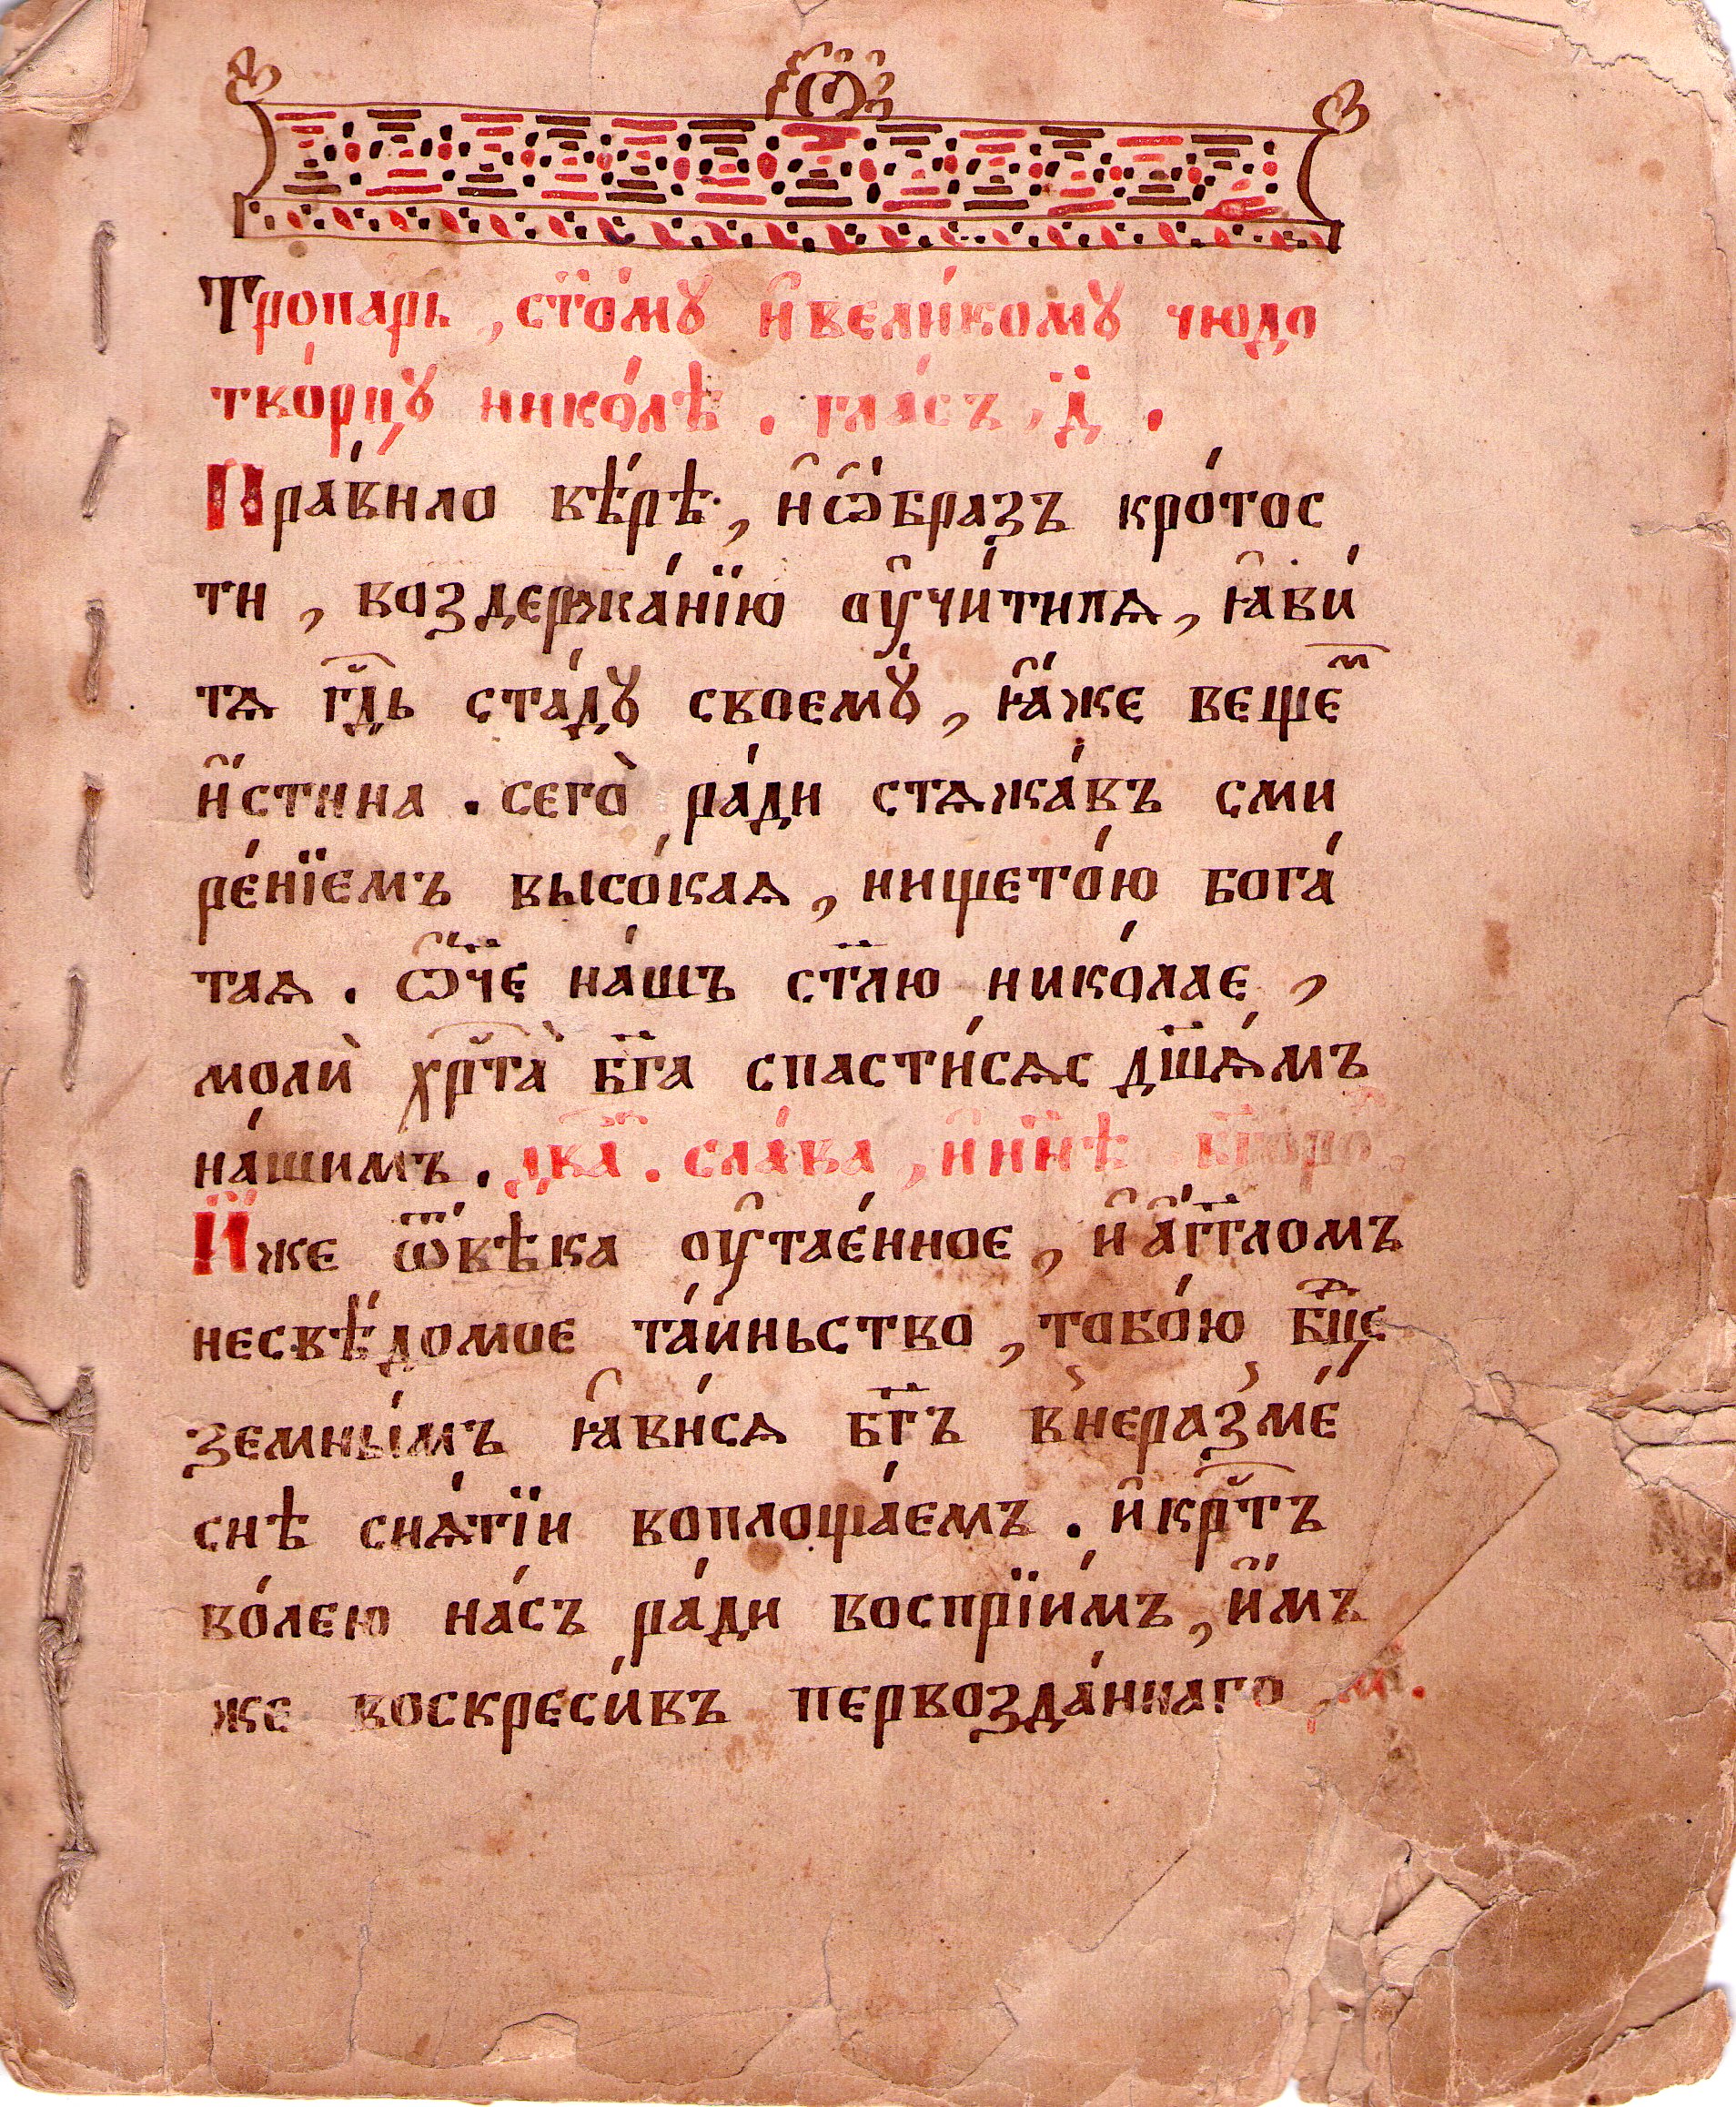 Тропарь, ст҃о́мꙋ и҆вели́комꙋ чюдо
тво́рцꙋ нико́лѣ. гла́съ, д҃.
Пра́вило вѣ́рѣ, и҆ѡ҆́бразъ кро́тос
ти, воздержа́нїю ѹ҆чи́тилѧ, ꙗ҆ви́
тѧ гдⷭ҇ь ста́дꙋ своемꙋ̀, ꙗ҆́же веще́мъ
и҆́стина. сего̀ ра́ди стѧжа́въ сми
ре́нїемъ высо́каѧ, нището́ю бога́
таѧ. ѿ҆́ч҃е на́шъ ст҃лю нико́лае,
молѝ хрⷭ҇та̀ б҃га спасти́сѧс дш҃а́мъ
на́шимъ. сла́ва, и҆нн҃ѣ
И҆́же ѿвѣ́ка ѹ҆тае́нное, и҆а҆́гг҃ломъ
несвѣ́домое та́иньство, тобо́ю бцⷣе
земны́мъ ꙗ҆ви́сѧ бг҃ъ внеразмѣ́
снѣ снѧ́тїи воплоща́емъ. и҆крⷭ҇тъ
во́лею на́съ ра́ди воспрїи́мъ, и҆́мъ
же воскреси́въ первозда́ннаго